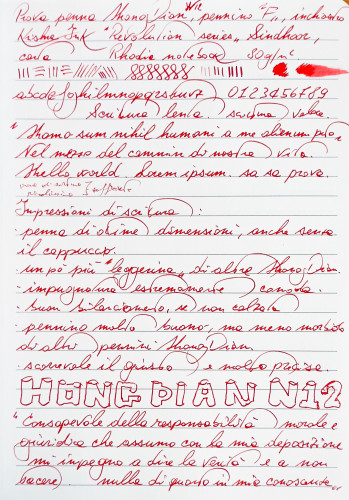 Prova penna HongDian N12, pennino "F", inchiostro
Krishna Ink "Revolution series, Sindhoor,
carta Rhodia notebook 80g/m²
abcdefghilmnopqrstuvz 0123456789
Scrittura lenta. scrittura veloce.
"Homo sum nihil humani a me alienum puto"
Nel mezzo del cammin di nostra vita.
Hello world. Lorem ipsum. sa sa prova.
Impressioni di scrittura:
· penna di ottime dimensioni, anche senza
il cappuccio.
· un pò più "leggerina" di altre HongDian.
· impugnatura estremamente comoda.
· buon bilanciamento, se non calzata
· pennino molto buono, ma meno morbido
di altri pennini HongDian.
· scorrevole il giusto e molto precisa.
HONGDIAN N12
"Consapevole della responsabilità morale e
giuridica che assumo con la mia deposizione
mi impegno a dire la verità e a non
tacere nulla di quanto in mia conoscenza"